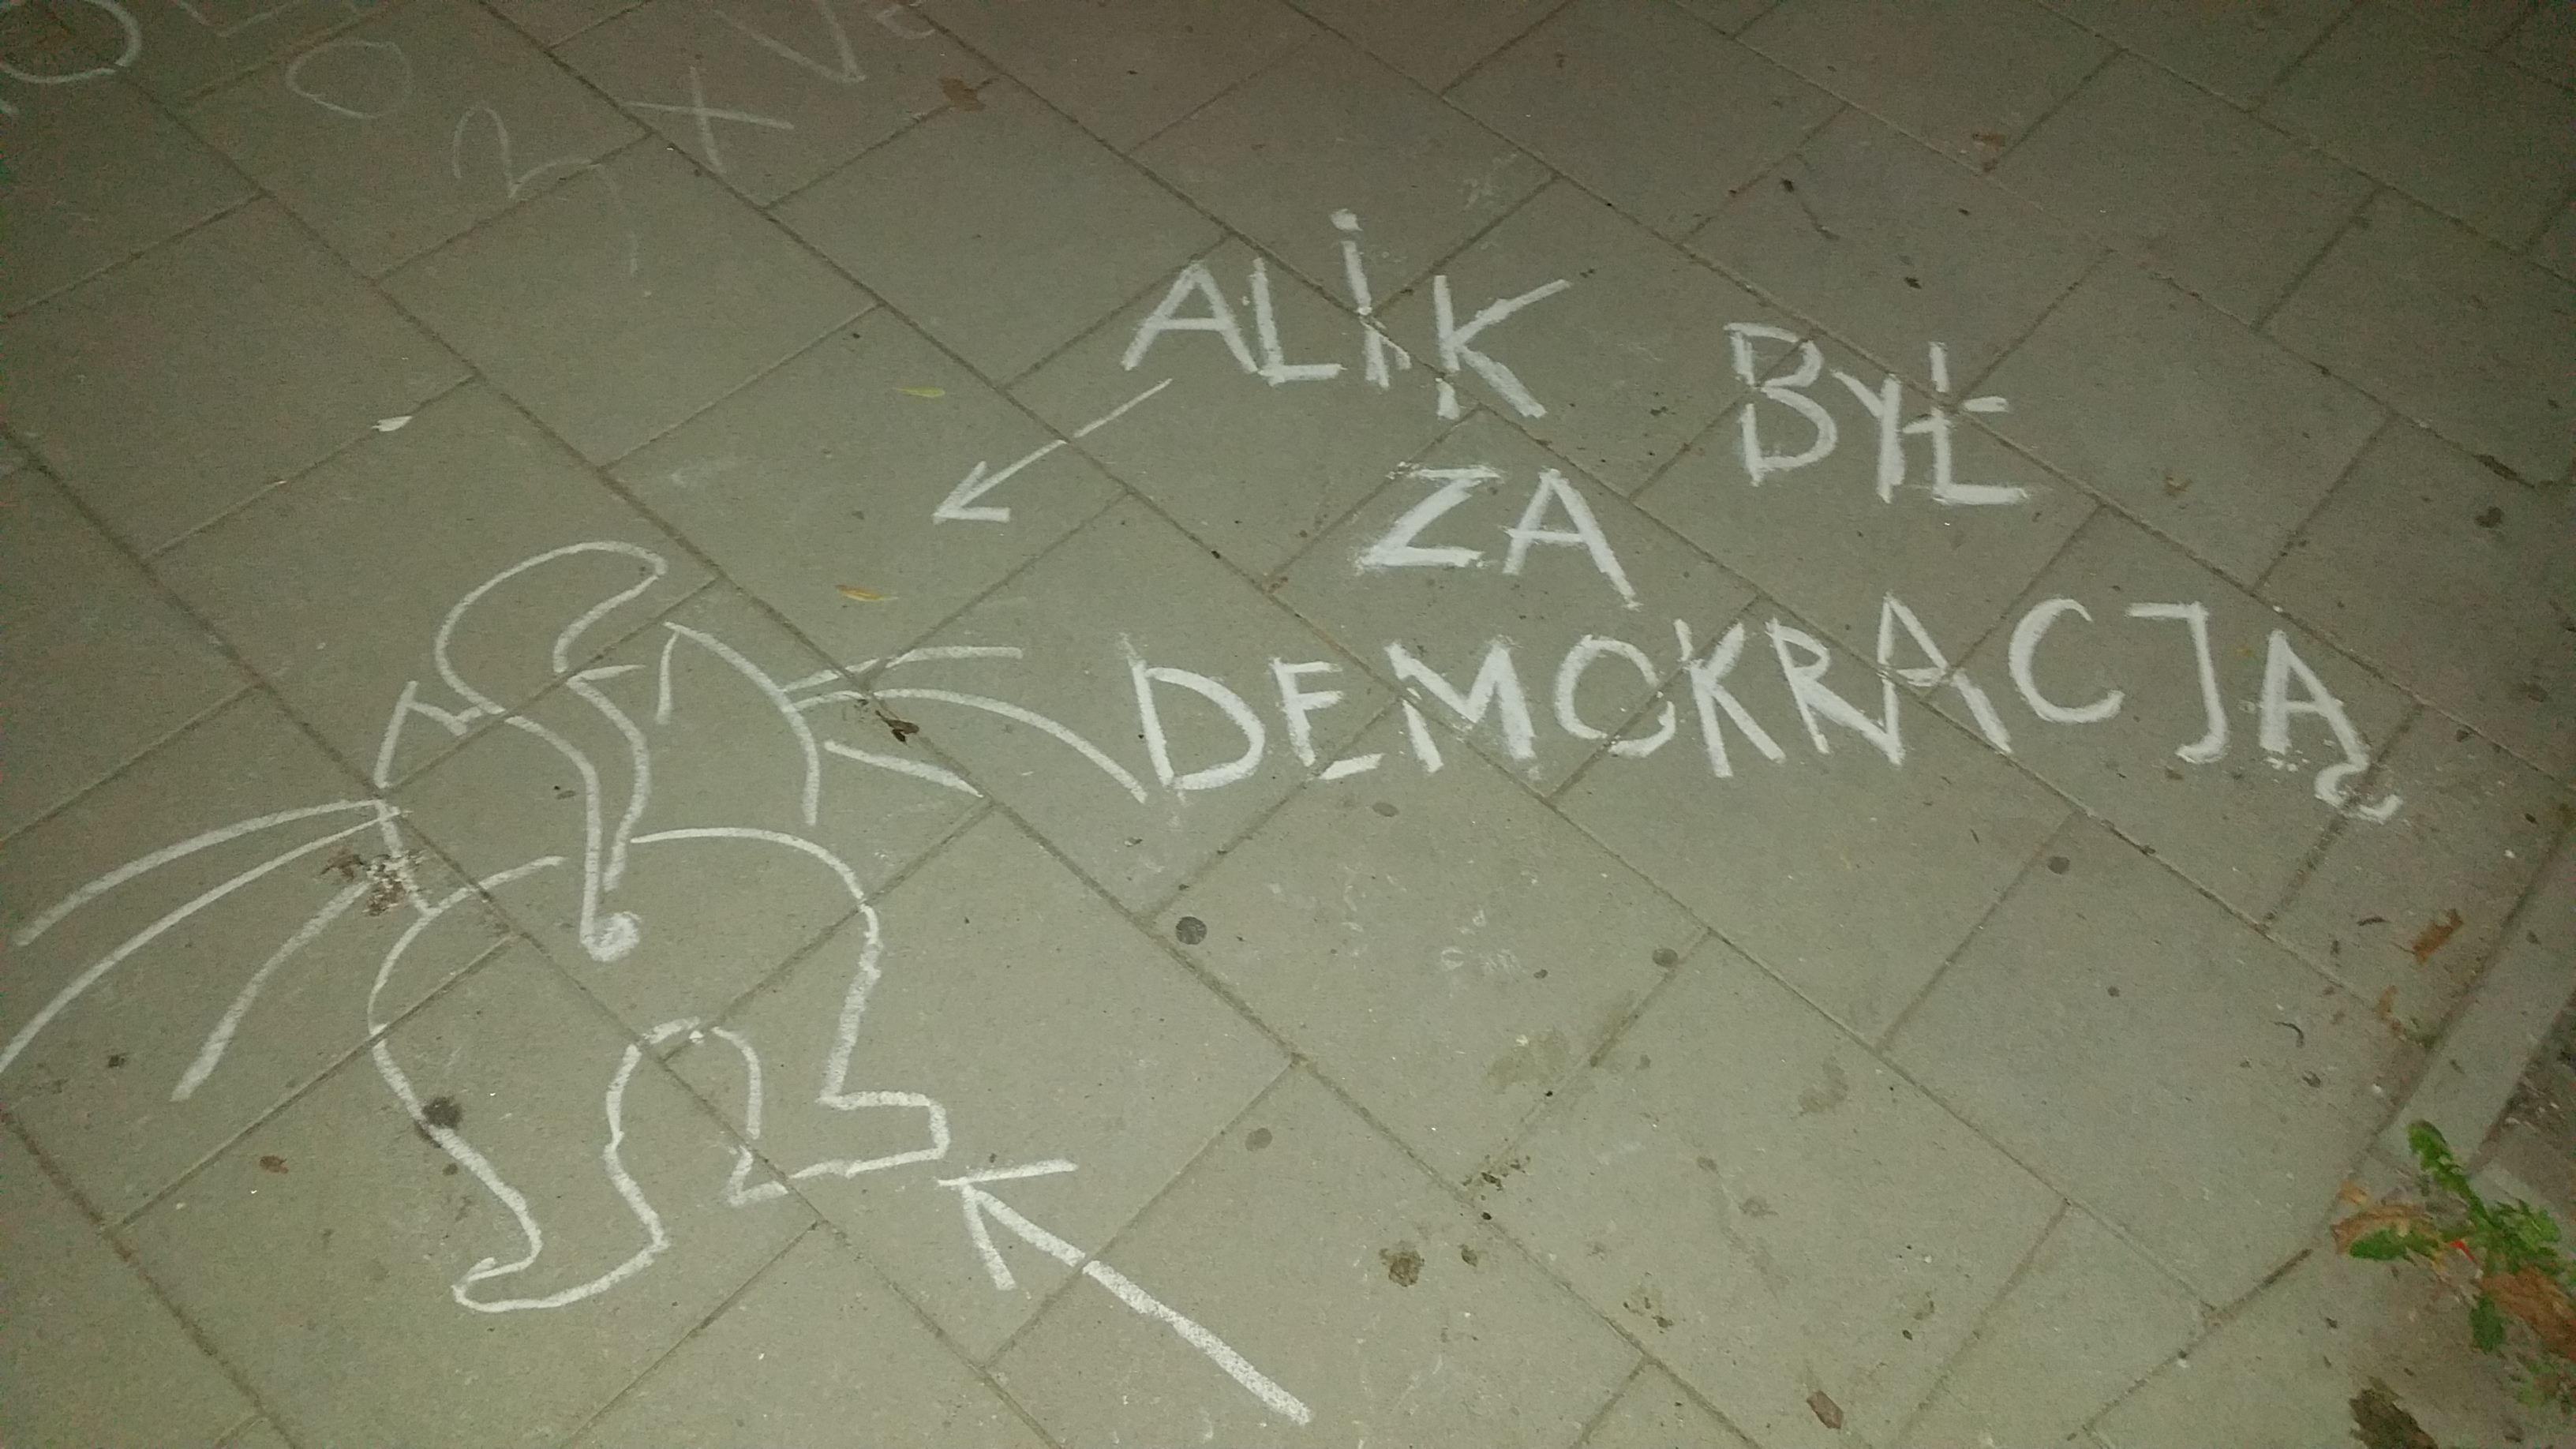 ALIK BYŁ
ZA
DEMOKRACJĄ